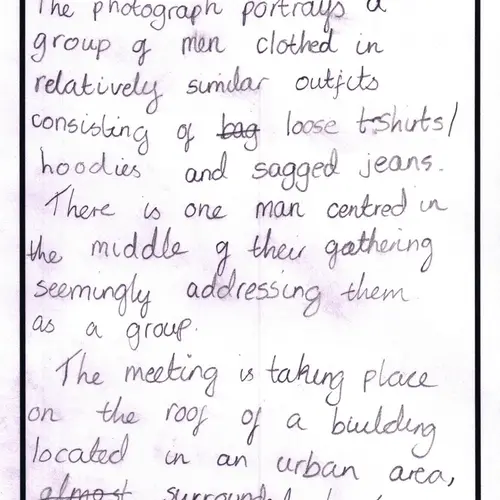 The photograph portrays a
group of men clothed in
relatively similar outfits
consisting of ~~bag~~ loose t-shirts/
hoodies and sagged jeans.
There is one man centred in
the middle of their gathering
seemingly addressing them
as a group.
The meeting is taking place
on the roof of a building
located in an urban area,
~~almost~~